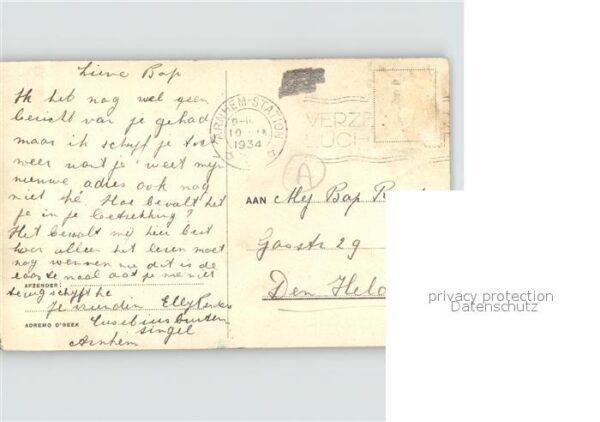 Lieve Bap
Ik heb nog wel geen
bericht van je gehad
maar ik schrijf je toch
weer want je weet mijn
nieuwe adres ook nog
niet hé. Hoe bevalt het
je in je betrekking?
Het bevalt mij hier best
hoor alleen het lesen moet
nog wennen nu dit is de
laatste maal dat je me niet
terug schrijft he
AFZENDER:
Je vriendin Elly
ADRES O'GEEK
Eusebiusbuiten
singel
Arnhem
ARNHEM-STATION
1934
VERZE
LUCH
A
AAN Mej Bap
Gasstr 29
Den Held
privacy protection
Datenschutz